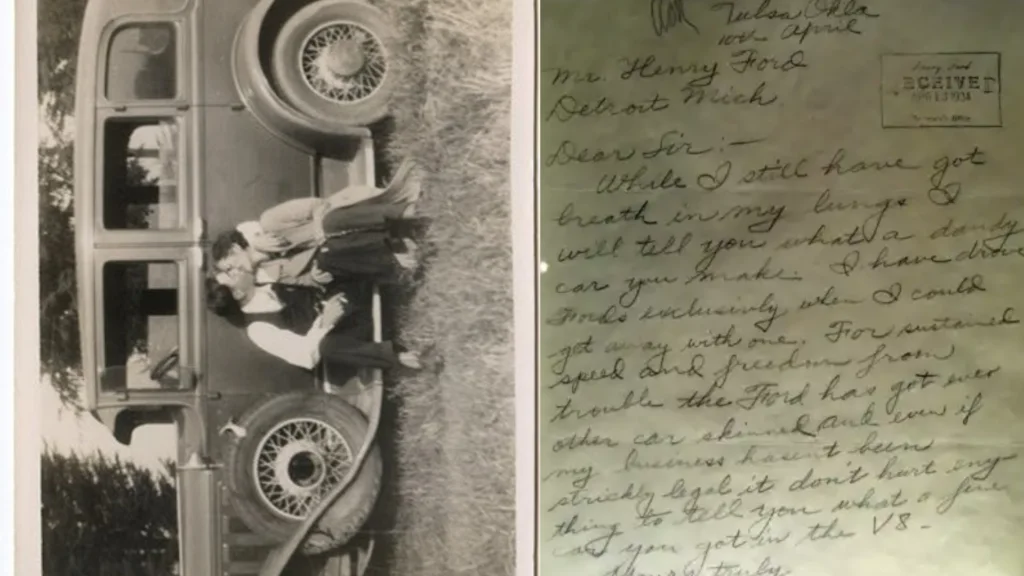 Tulsa Okla
10th April
Mr. Henry Ford
Detroit Mich.
RECEIVED
Dear Sir:-
While I still have got
breath in my lungs I
will tell you what a dandy
car you make. I have drove
Fords exclusively when I could
get away with one. For sustained
speed and freedom from
trouble the Ford has got ever
other car skinned and even if
my business hasen't been
strickly legal it don't hurt eny
thing to tell you what a fine
car you got in the V8 -
Yours truly